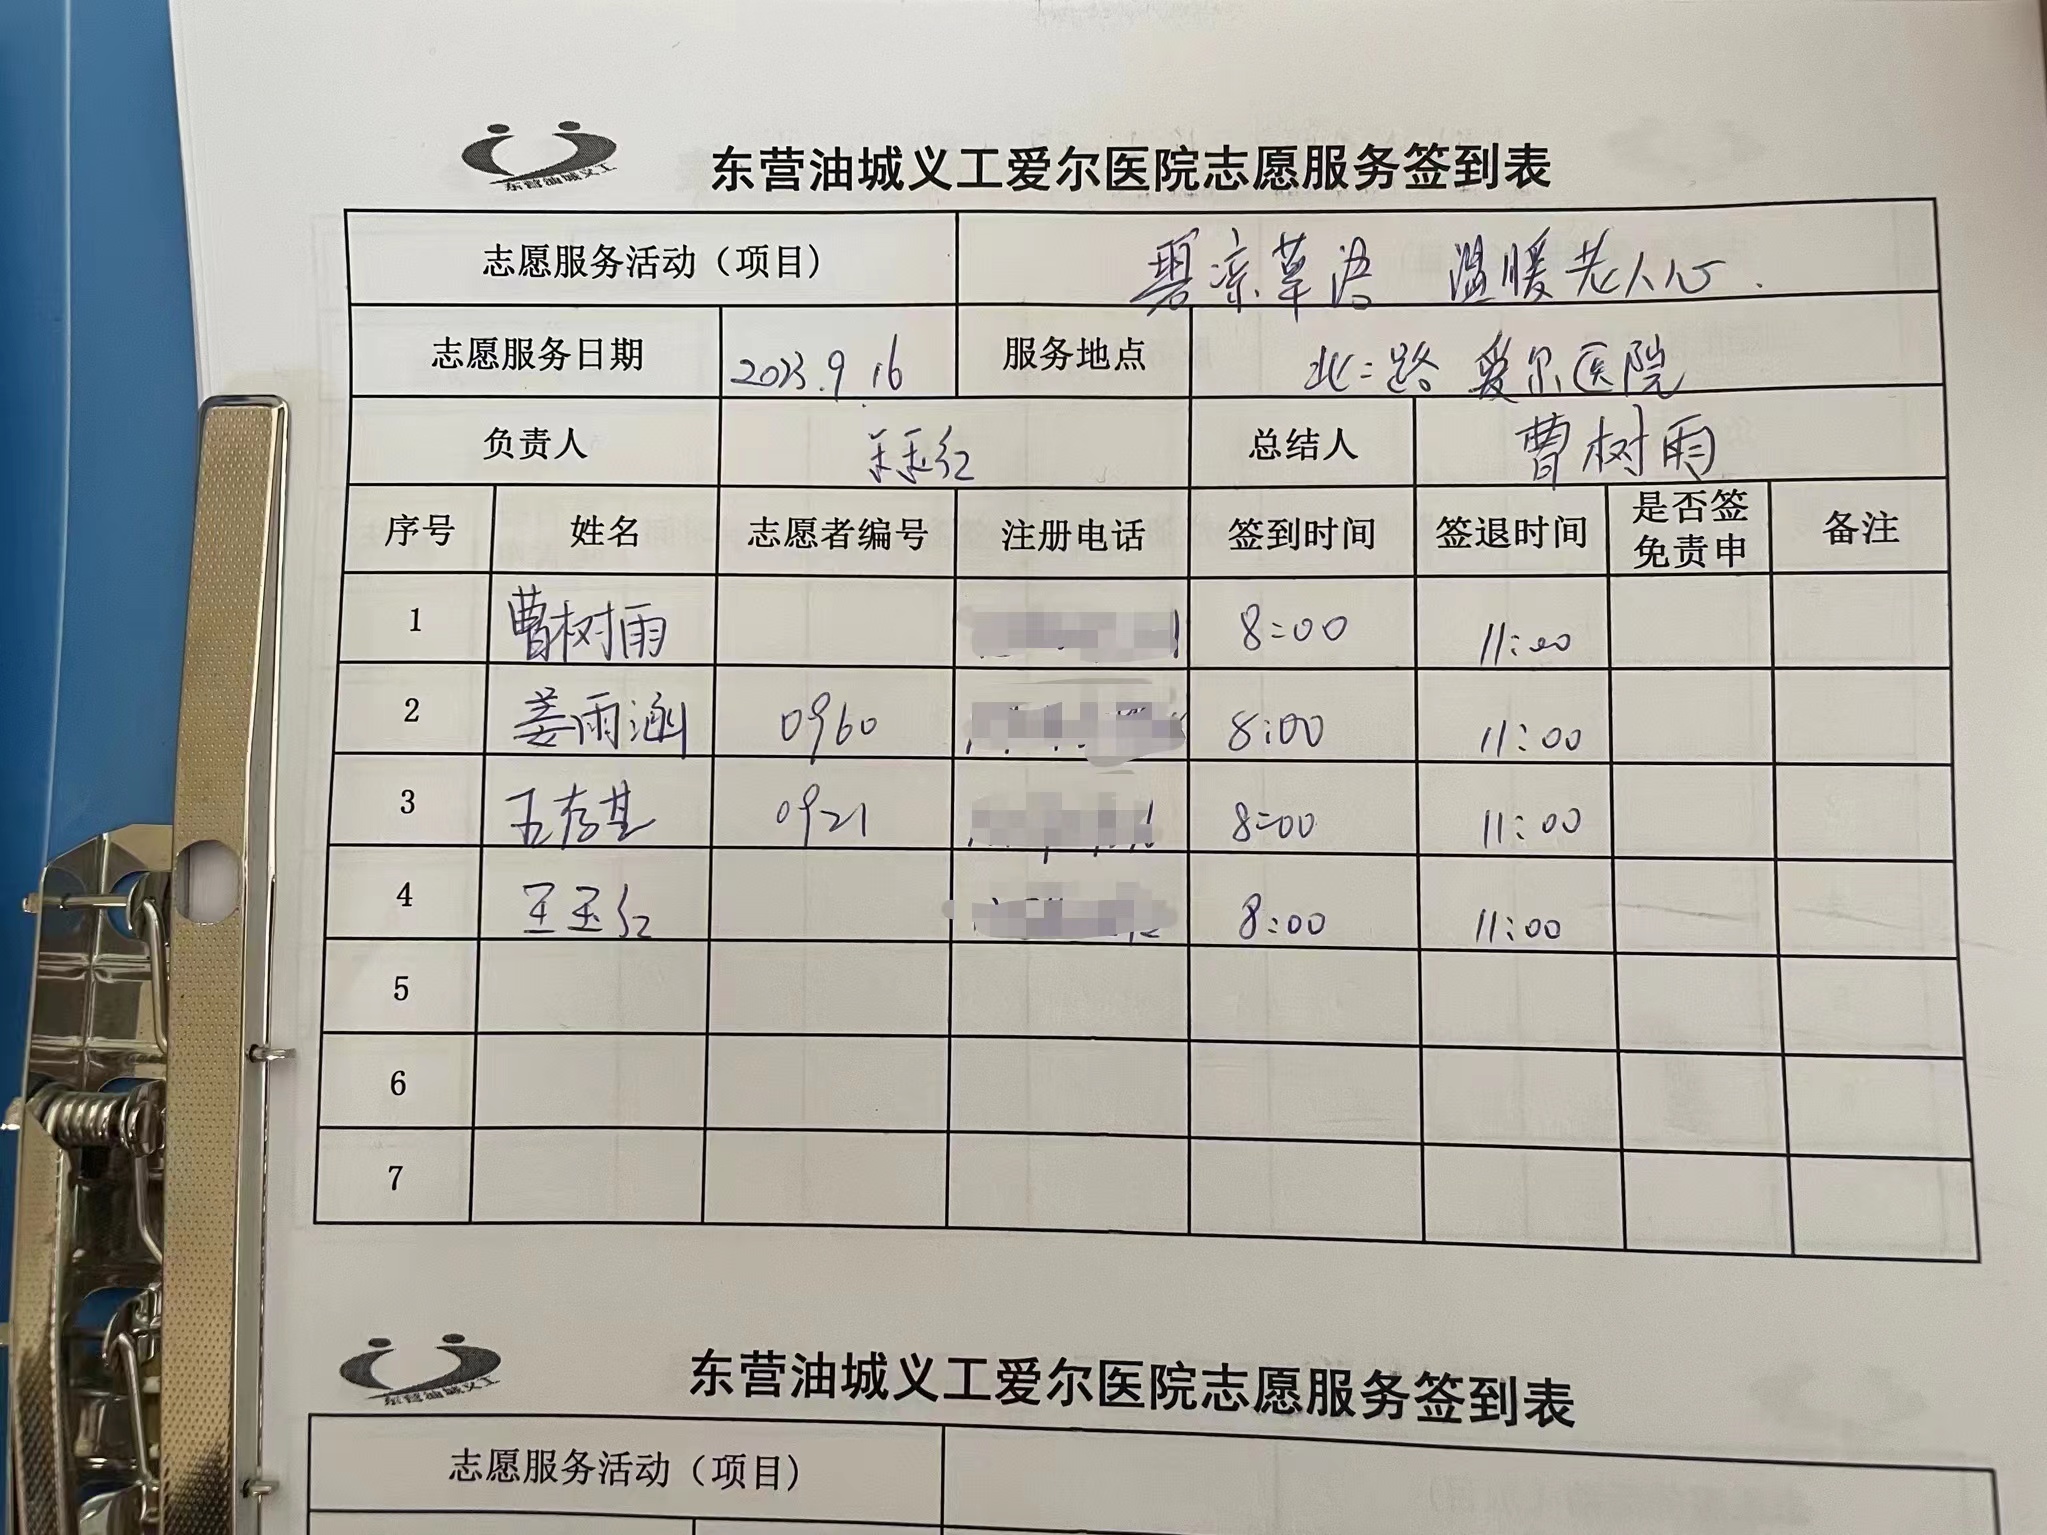 东营油城义工
东营油城义工爱尔医院志愿服务签到表
志愿服务活动（项目） 温暖老人心.
志愿服务日期 2023.9.16 服务地点 北二路 爱尔医院
负责人 王玉红 总结人 曹树雨
序号 姓名 志愿者编号 注册电话 签到时间 签退时间 是否签免责申 备注
1 曹树雨 8:00 11:00
2 姜雨涵 0960 8:00 11:00
3 王存基 0921 8:00 11:00
4 王玉红 8:00 11:00
5
6
7
东营油城义工
东营油城义工爱尔医院志愿服务签到表
志愿服务活动（项目）